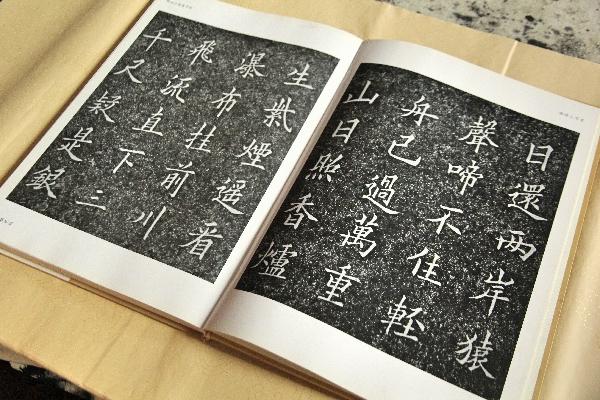 日還两岸猿
聲啼不住軽
舟已過萬重
山日照香爐
生紫煙遥看
瀑布挂前川
飛流直下三
千尺疑是銀